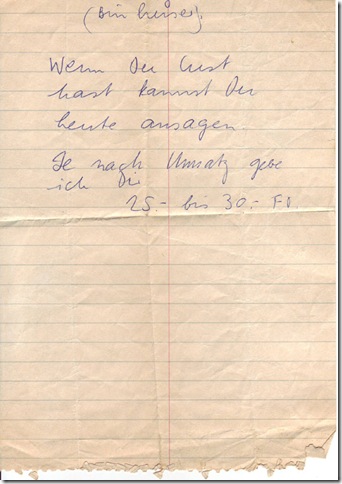 (bin heiser).
Wenn Du Lust
hast kannst Du
heute ansagen.
Je nach Umsatz gebe
ich Dir
25.- bis 30.- Fr.